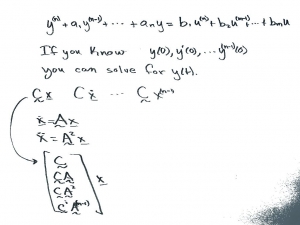 y⁽ⁿ⁾ + a₁ y⁽ⁿ⁻¹⁾ + ... + aₙ y = b₁ u⁽ⁿ⁾ + b₂ u⁽ⁿ⁻¹⁾ + ... + bₘ u
If you know y(0), y'(0), ... y⁽ⁿ⁻¹⁾(0)
you can solve for y(t).
C x C ẋ ... C x⁽ⁿ⁻¹⁾
ẋ = A x
ẍ = A² x
[ C
CA
CA²
C A⁽ⁿ⁻¹⁾ ] x